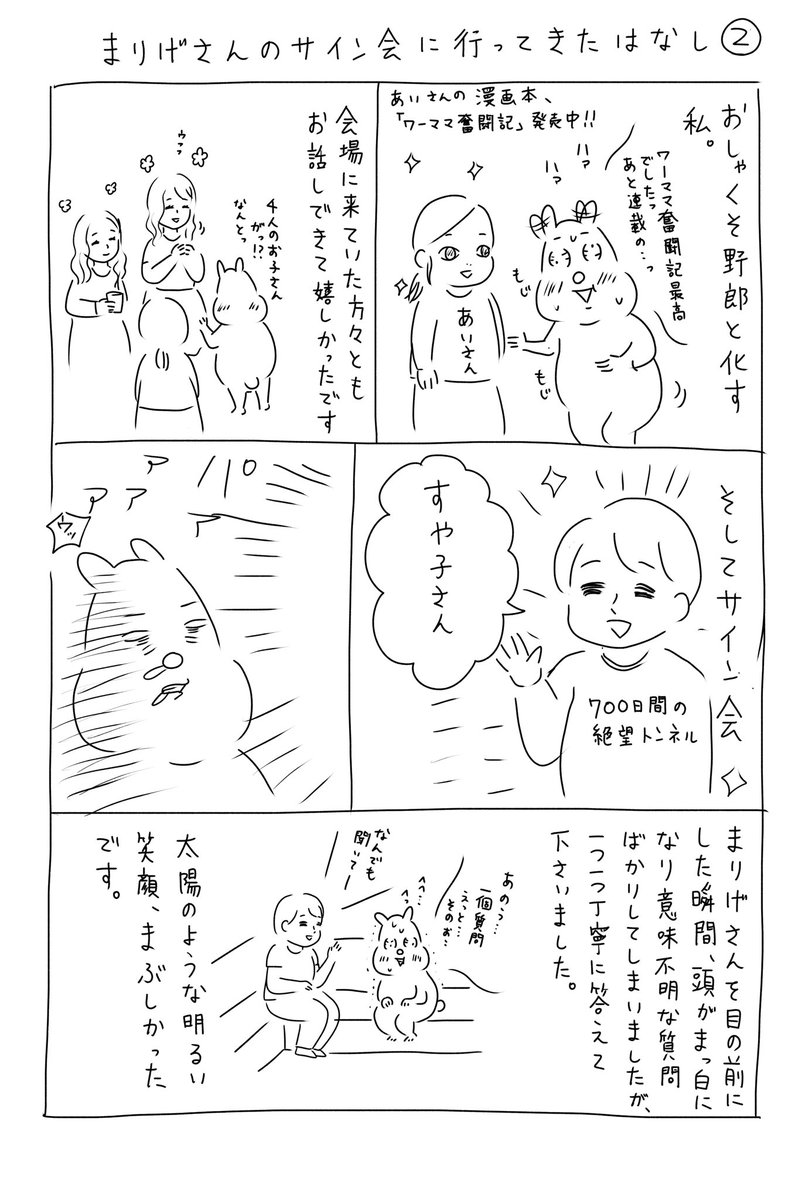 まりげさんのサイン会に行ってきたはなし②
おしゃくそ野郎と化す
私。
あいさんの漫画本、
「ワーママ奮闘記」発売中!!
ハァ
ハァ
ワーママ奮闘記最高
でしたっ
あと連載の…っ
もじ
もじ
あいさん
会場に来ていた方々とも
お話しできて嬉しかったです
ウフフ
4人のお子さん
がっ!?
なんとっ
そしてサイン会
すや子さん
700日間の
絶望トンネル
パアアアア
ウッ
まりげさんを目の前に
した瞬間、頭がまっ白に
なり意味不明な質問
ばかりしてしまいましたが、
一つ一つ丁寧に答えて
下さいました。
あのっ…
一個質問
えっと…
そのぉ…
へっ…
へっ
なんでも
聞いてー
太陽のような明るい
笑顔、まぶしかった
です。